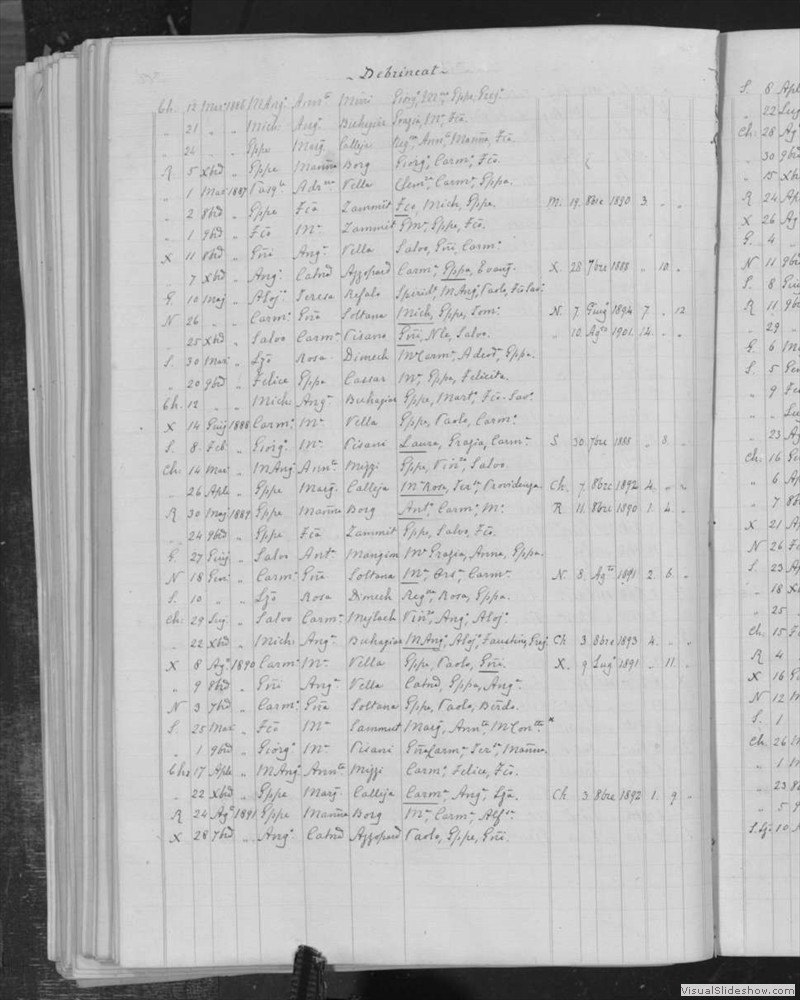 - Debrincat -
Ch. 12 Mar. 1886 MAng. Annta Mizzi Giorg., Ma, Eppe, Greg.
" 21 " " Mich. Ang. Buhagiar Grazia, Ma, Fca.
" 24 " " Eppe Marg. Calleja Regna, Annta, Marña, Fca
R 5 Xbre " Eppe Marña Borg Giorga, Carma, Fca.
" 1 Mar. 1887 Pasqle Adrna Vella Clemta, Carma, Eppa.
" 2 8bre " Eppe Fca Zammit Fco, Mich, Eppe. M. 19. 8bre 1890 3 " "
" 1 9bre " Fco Ma Zammit Eppe, Fco.
X 11 8bre " Gñi Anga Vella Salvo, Gñi, Carmo
" 7 Xbre " Ango Catnã Azzopard Carmo, Eppa, Evang. X. 28. 7bre 1888 " 10 "
G. 10 Maj " Aloj. Teresa Refalo Spirido, MAng, Paolo, Fco Sav.
N 26 " " Carmo Gña Soltana Mich, Eppe, Tom. N. 7. Giug. 1894 7. " 12
" 25 Xbre " Salvo Carma Pisani Gñi, Nla, Salvo. " 10. Ago 1901. 14. " "
S. 30 Mar. " Lzo Rosa Dimech MaCarma, Adeod., Eppa.
" 20 9bre " Felice Eppa Cassar Ma, Eppa, Felicita.
Ch. 12 " " Miche Anga Buhagiar Eppe, Mart., Fco-Sav.
X 14 Giug 1888 Carmo Ma Vella Eppe, Paolo, Carmo
S. 8. Feb. " Giorgo Ma Pisani Laura, Grazia, Carma S 30. 7bre 1888 " 8. "
Ch. 14 Mar. " MAng. Annta Mizzi Eppe, Vinco, Salvo.
" 26 Aple " Eppe Marg. Calleja Ma Rosa, Tersa, Providenza. Ch. 7. 8bre 1892 4. " "
R 30 Maj 1889 Eppe Marña Borg Anta, Carma, Ma. R 11. 8bre 1890 1. 4. "
" 24 9bre " Eppe Fca Zammit Eppe, Salvo, Fco.
G. 27 Giug " Salvo Anta Mangion Ma Grazia, Anna, Eppa.
N 18 Gen. " Carmo Gña Soltana Ma, Orsa, Carma N. 8. Ago 1891 2. 6. "
S. 10 " " Lzo Rosa Dimech Regna, Rosa, Eppa.
Ch. 29 Lug. " Salvo Carma Mejlach Vinco, Ang., Aloj.
" 22 Xbre " Miche Anga Buhagiar MAng., Aloj., Faustin, Greg. Ch 3. 8bre 1893 4. " "
X 8 Ago 1890 Carmo Ma Vella Eppe, Paolo, Gñi. X. 9 Lug. 1891 " 11. "
" 9 8bre " Gñi Anga Vella Catnã, Eppa, Anga
N 3 7bre " Carmo Gña Soltana Eppe, Paolo, Berdo.
S. 25 Mar. " Fco Ma Sammut Marg., Annta, MConcta x
" 1 9bre " Giorgo Ma Pisani GñaCarma, Tersa, Marña.
Ch. 17 Aple " MAng. Annta Mizzi Carmo, Felice, Fco.
" 22 Xbre " Eppe Marg. Calleja Carmo, Ango, Lzo. Ch 3. 8bre 1892 1. 9. "
R 24 Ago 1891 Eppe Marña Borg Ma, Carma, Alfsa
X 28 7bre " Ango Catnã Azzopard Paolo, Eppe, Gñi.
S. 8 Aple
" 22 Lug
Ch 28 Ag
" 30 9bre
" 15 Xb
R 24 Ap
X 26 Ag
G. 4
N 11 9bre
S. 8 Giu
R 11 9b
" 29
G. 6 Ma
S. 5 Gen
" 9 Fe
" " Lug
" 23 Ag
Ch. 16 Ge
" 6 Ap
" 7 8b
X 21 Ap
N 26 Fe
S. 23 Ap
" 18 Xb
" 25
Ch. 15 F
R 4
X 16 G
N 12 M
S. 1
Ch. 26 M
" 1 M
" 23 8
" 5
S. Lzo 10
VisualSlideshow.com